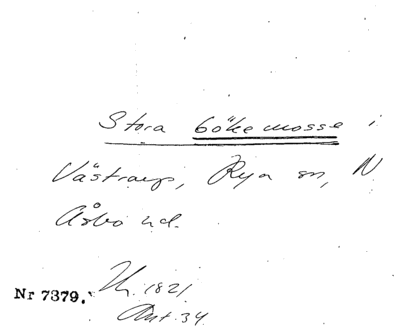 Stora bökemosse i
Västraup, Rya sn, N
Åsbo hd.
Nr 7379.
1821
Akt. 34